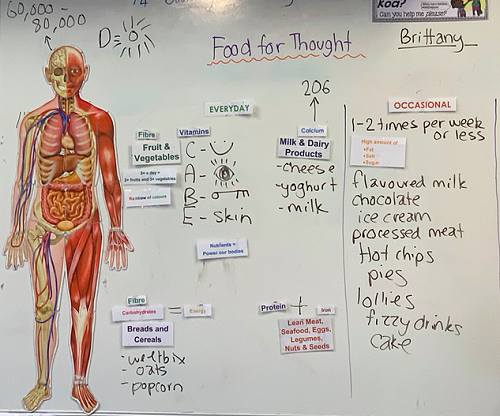 Koa?
Can you help me please?
60,000 -
80,000
D=
Food for Thought
Brittany
206
EVERYDAY
Fibre
Vitamins
Fruit &
Vegetables
5+ a day =
2+ fruits and 3+ vegetables
Rainbow of colours
C -
A -
B -
E - skin
Nutrients =
Power our bodies
Calcium
Milk & Dairy
Products
- cheese
- yoghurt
- milk
Fibre
Carbohydrates
=
Energy
Breads and
Cereals
- weetbix
- oats
- popcorn
Protein
+
Iron
Lean Meat,
Seafood, Eggs,
Legumes,
Nuts & Seeds
OCCASIONAL
1-2 times per week
or less
High amount of
•Fat
•Salt
•Sugar
flavoured milk
chocolate
ice cream
processed meat
Hot chips
pies
lollies
fizzy drinks
cake